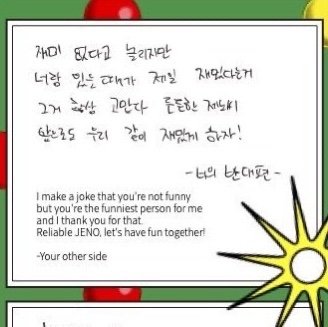 재미 없다고 놀리지만
너랑 있는 때가 제일 재밌다는거
그거 항상 고맙다 든든한 제노씨
앞으로도 우리 같이 재밌게 하자!
- 너의 반대편 -
I make a joke that you're not funny
but you're the funniest person for me
and I thank you for that.
Reliable JENO, let's have fun together!
-Your other side